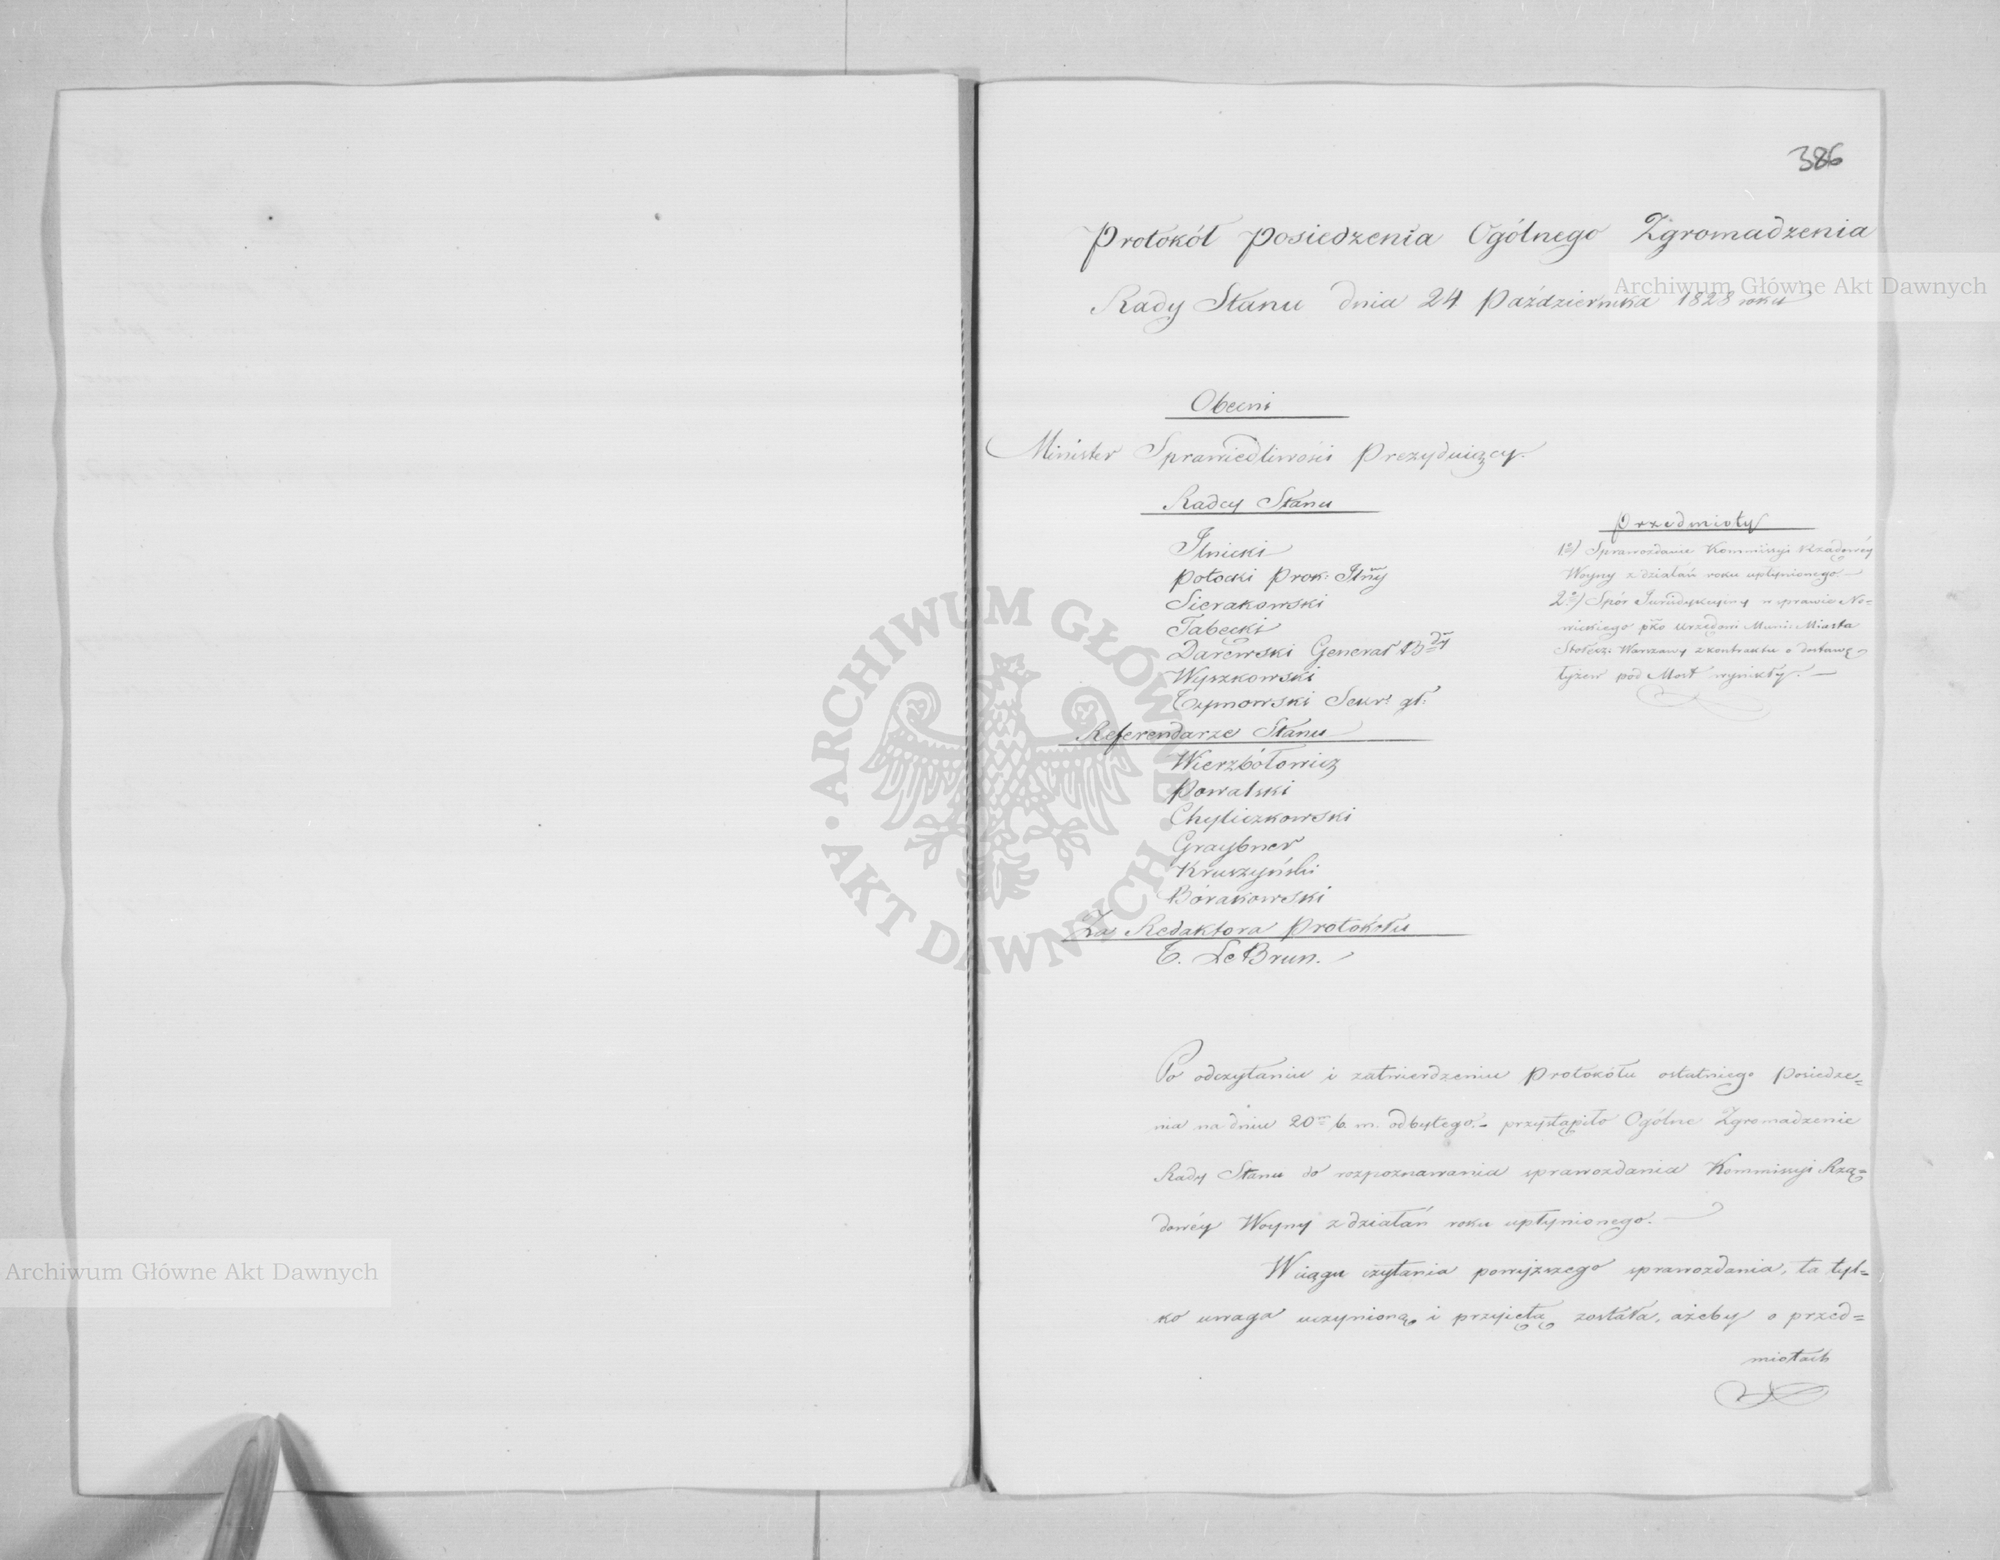 386
Protokół Posiedzenia Ogólnego Zgromadzenia
Rady Stanu dnia 24 Października 1828 roku
Obecni
Minister Sprawiedliwości Prezyduiący.
Radcy Stanu
Ilnicki
Potocki Prok:
Sierakowski
Tabęcki
Darewski Generał Bdy
Wyszkowski
Tymowski Sekr: gł:
Referendarze Stanu
Wierzbołowicz
Powalski
Chyliczkowski
Graybner
Kruszyński
Borakowski
Za Redaktora Protokółu
T. Le Brun.
Przedmioty
1o) Sprawozdanie Kommissyi Rządowéy
Woyny z działań roku upłynionego
2o) Spór Jurisdykcyiny w sprawie No-
wickiego pko Urzędowi Munic: Miasta
Stołecz: Warszawy z kontraktu o dostawę
łyżew pod Most wynikły.
Po odczytaniu i zatwierdzeniu Protokółu ostatniego Posiedze=
nia na dniu 20m b. m. odbytego. przystąpiło Ogólne Zgromadzenie
Rady Stanu do rozpoznawania sprawozdania Kommissyi Rzą=
dowéy Woyny z działań roku upłynionego.
W ciągu czytania powyższego sprawozdania, ta tyl=
ko uwaga uczynioną i przyiętą została, ażeby o przed=
miotach
Archiwum Główne Akt Dawnych
Archiwum Główne Akt Dawnych
ARCHIWUM GŁÓWNE
AKT DAWNYCH